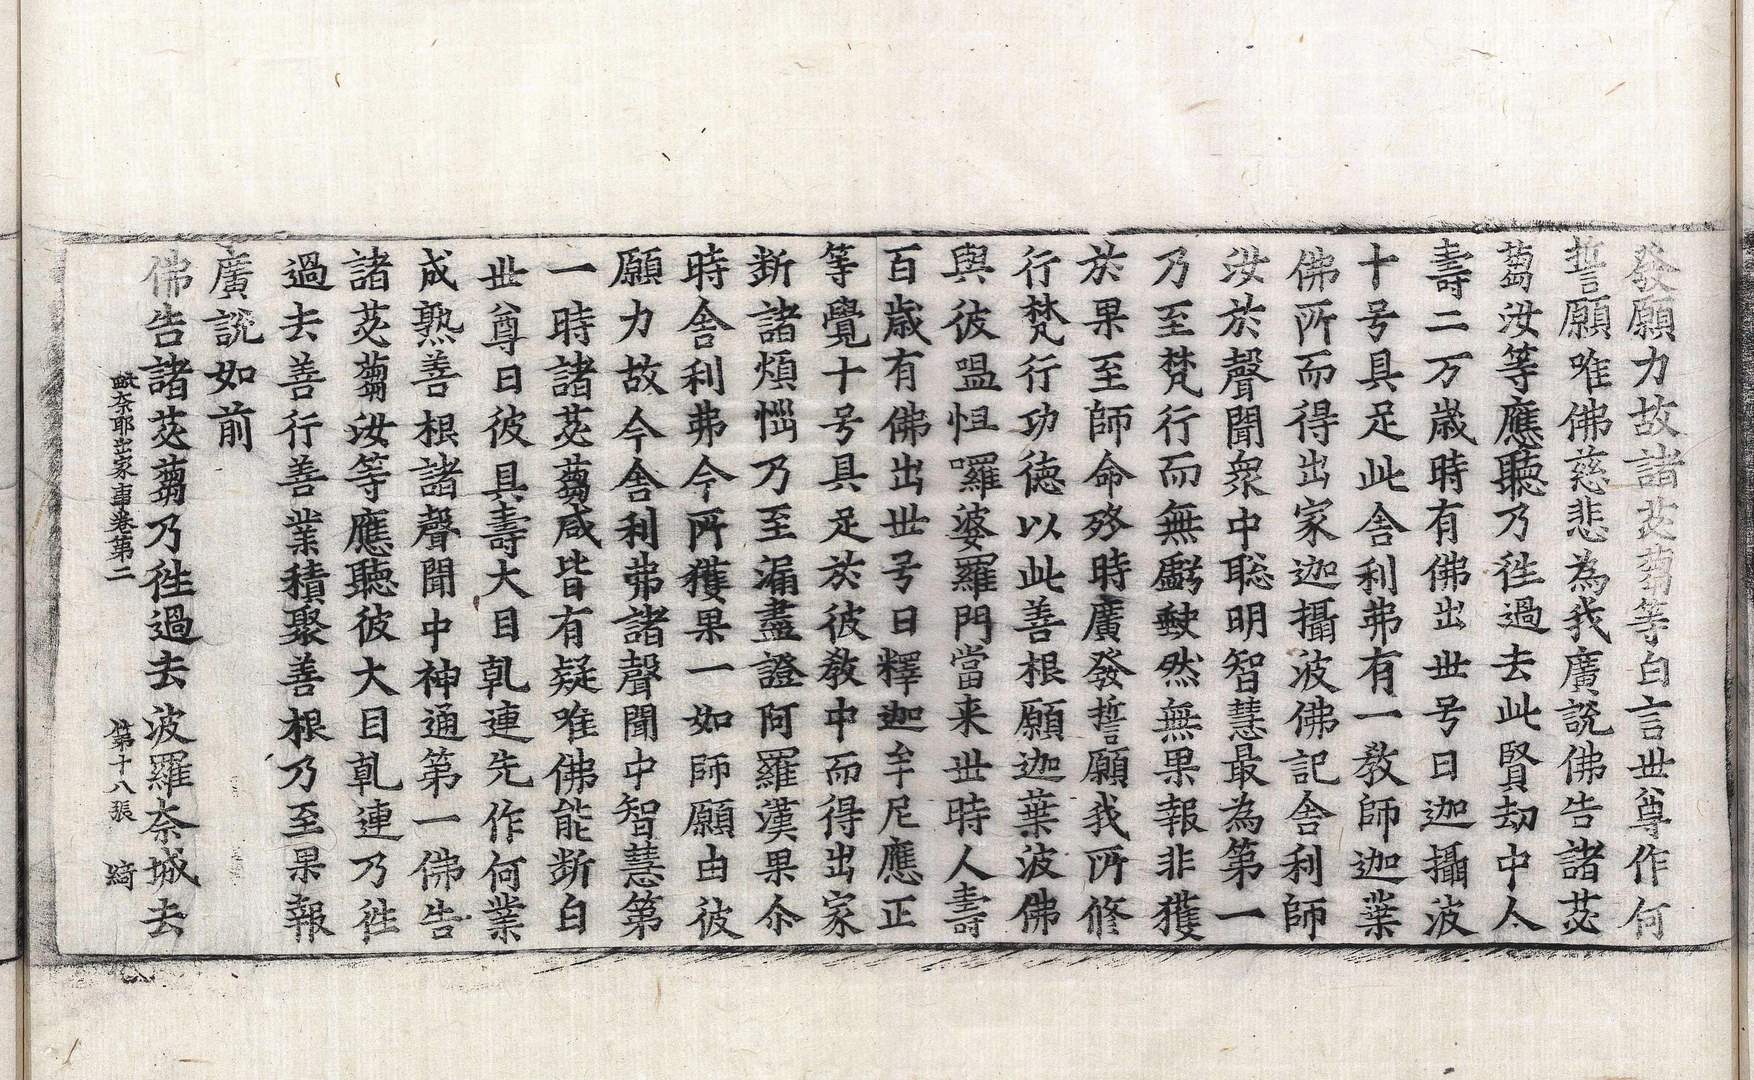 發願力故諸苾蒭等白言世尊作何
誓願唯佛慈悲為我廣說佛告諸苾
蒭汝等應聽乃徃過去此賢劫中人
壽二万歲時有佛出世号曰迦攝波
十号具足此舎利弗有一教師迦葉
佛所而得出家迦攝波佛記舎利師
汝於聲聞衆中聡明智慧最為第一
乃至梵行而無虧缺然無果報非獲
於果至師命終時廣發誓願我所修
行梵行功徳以此善根願迦葉波佛
與彼嗢怛囉婆羅門當来世時人壽
百歲有佛出世号曰釋迦牟尼應正
等覺十号具足於彼教中而得出家
断諸煩惱乃至漏盡證阿羅漢果尒
時舎利弗今所獲果一如師願由彼
願力故今舎利弗諸聲聞中智慧第
一時諸苾蒭咸皆有疑唯佛能断白
世尊曰彼具壽大目乹連先作何業
成熟善根諸聲聞中神通第一佛告
諸苾蒭汝等應聽彼大目乹連乃徃
過去善行善業積聚善根乃至果報
廣說如前
佛告諸苾蒭乃徃過去波羅奈城去
毗奈耶出家事卷第二 第十八張 綺